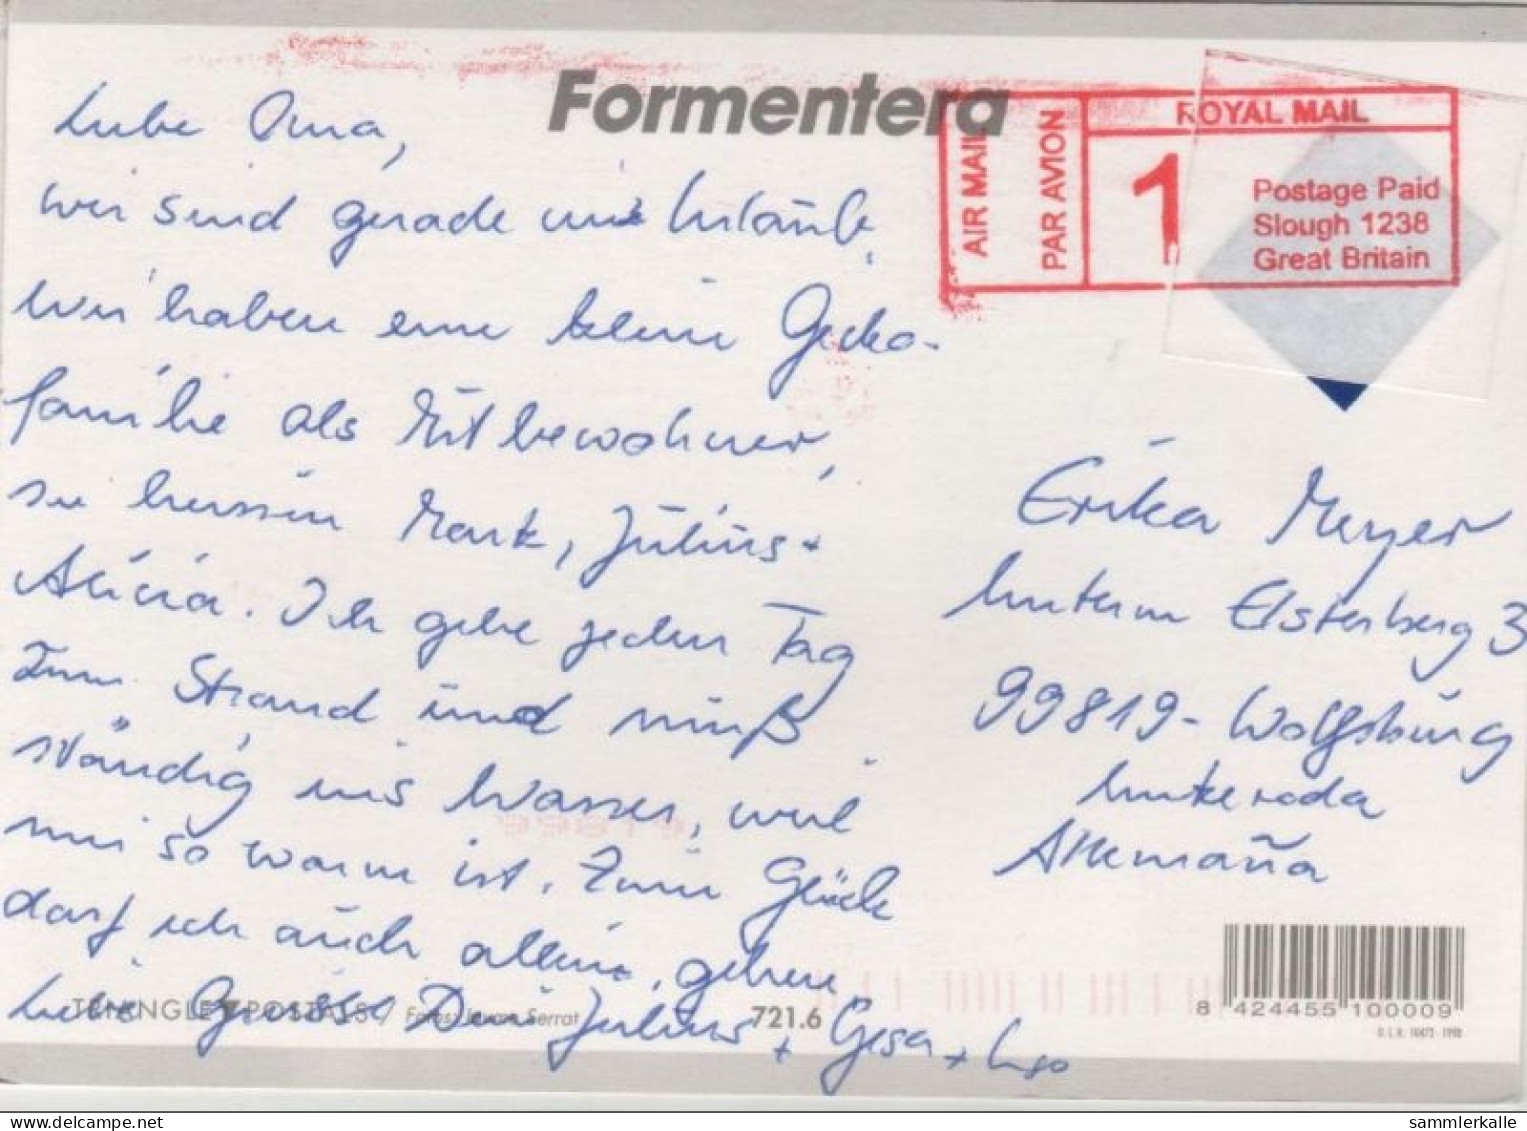 Formentera
AIR MAIL
PAR AVION
1
ROYAL MAIL
Postage Paid
Slough 1238
Great Britain
Liebe Oma,
wir sind gerade im Urlaub.
Wir haben eine kleine Gecko-
familie als Mitbewohner,
sie heissen Mark, Julius +
Alicia. Ich gehe jeden Tag
zum Strand und muß
ständig ins Wasser, weil
mir so warm ist. Zum Glück
darf ich auch allein gehen
Liebe Grüsse Dein Julius + Gesa + Ingo
Erika Meyer
Hinterm Elsterberg 3
99819 - Wolfsburg
Unkeroda
Allemaña
TRIANGLE POSTALS / Fotos: Jaume Serrat
721.6
8 424455 100009
D.L.B. 1998
99819
sammlerkalle